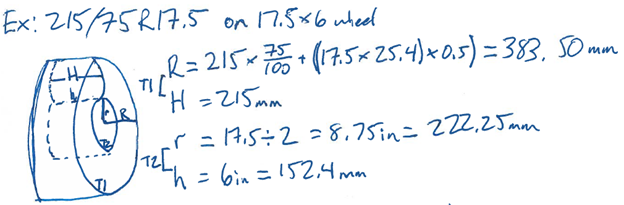 Ex: 215/75R17.5 on 17.5×6 wheel
T1[ R = 215 × 75/100 + ((17.5×25.4)×0.5) = 383.50 mm
H = 215mm
T2[ r = 17.5÷2 = 8.75in = 222.25mm
h = 6in = 152.4 mm
H
h
r
R
T2
T1